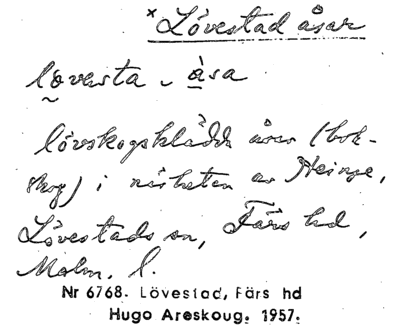 ×Lövestad åsar
lövesta, åsa
lövskogsklädda åsar (bok-
skog) i närheten av Heinge,
Lövestads sn, Färs hd,
Malm. l.
Nr 6768. Lövestad, Färs hd
Hugo Areskoug. 1957.